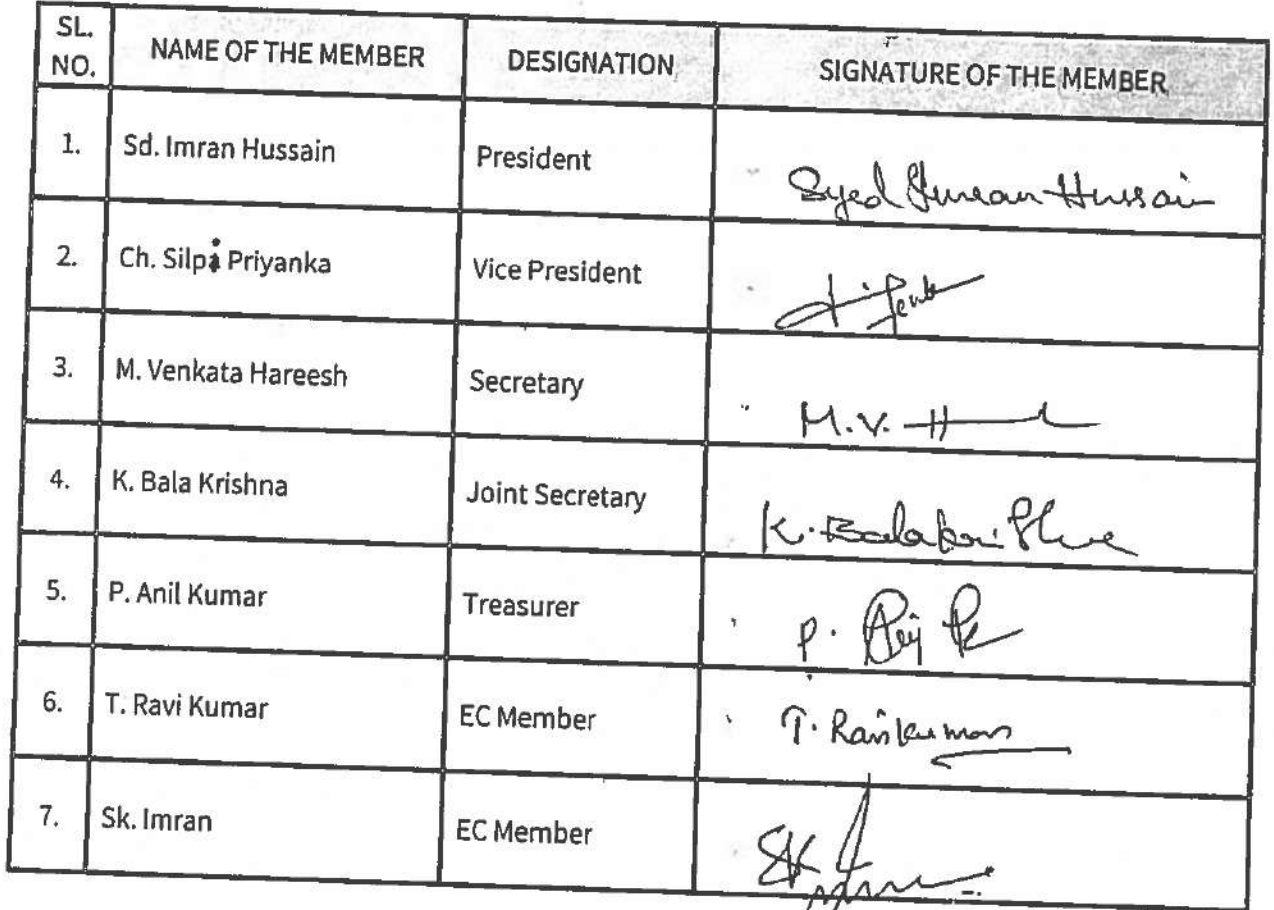 SL. NO. NAME OF THE MEMBER DESIGNATION SIGNATURE OF THE MEMBER
1. Sd. Imran Hussain President Syed Imran Hussain
2. Ch. Silpi Priyanka Vice President
3. M. Venkata Hareesh Secretary M.V. H
4. K. Bala Krishna Joint Secretary K. Balakrishna
5. P. Anil Kumar Treasurer P.
6. T. Ravi Kumar EC Member T. Ravikumar
7. Sk. Imran EC Member SK